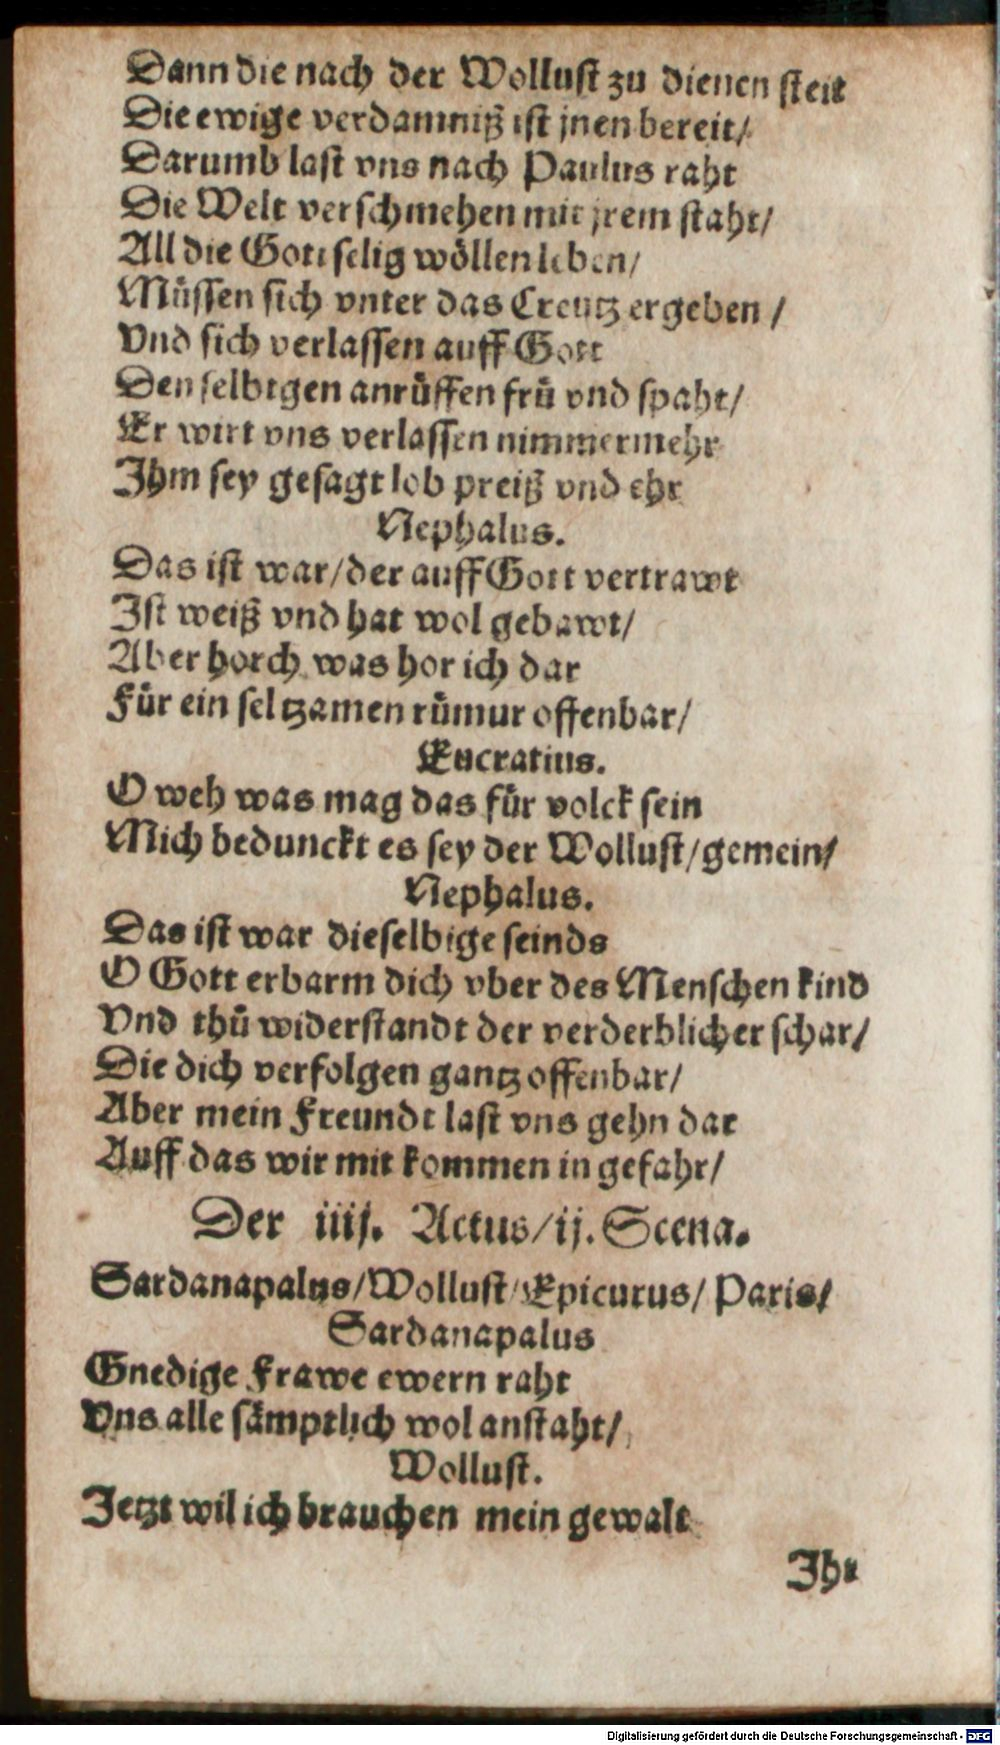 Dann die nach der Wollust zu dienen steit
Die ewige verdamniß ist jnen bereit/
Darumb last vns nach Paulus raht
Die Welt verschmehen mit jrem staht/
All die Gott selig wöllen leben/
Müssen sich vnter das Creutz ergeben /
Vnd sich verlassen auff Gott
Den selbigen anrůffen frů vnd spaht/
Er wirt vns verlassen nimmermehr
Ihm sey gesagt lob preiß vnd ehr
Nephalus.
Das ist war/der auff Gott vertrawt
Ist weiß vnd hat wol gebawt/
Aber horch was hor ich dar
Für ein seltzamen růmur offenbar/
Eucratius.
O weh was mag das für volck sein
Mich bedunckt es sey der Wollust/gemein/
Nephalus.
Das ist war dieselbige seinds
O Gott erbarm dich vber des Menschen kind
Vnd thů widerstandt der verderblicher schar/
Die dich verfolgen gantz offenbar/
Aber mein Freundt last vns gehn dar
Auff das wir mit kommen in gefahr/
Der iiij. Actus/ij. Scena.
Sardanapalus/Wollust/Epicurus/Paris/
Sardanapalus
Gnedige Frawe ewern raht
Vns alle sämptlich wol anstaht/
Wollust.
Jetzt wil ich brauchen mein gewalt
Ihr
Digitalisierung gefördert durch die Deutsche Forschungsgemeinschaft - DFG